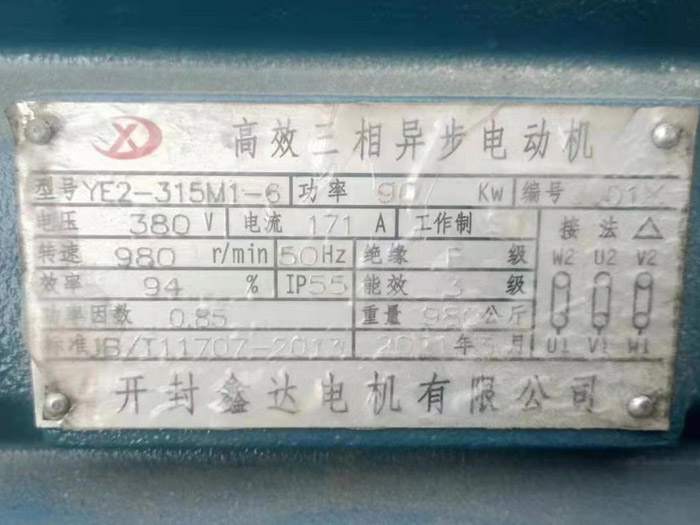 高效三相异步电动机
型号 YE2-315M1-6 功率 90 Kw 编号
电压 380 V 电流 171 A 工作制 接法 △
转速 980 r/min 50Hz 绝缘 F 级 W2 U2 V2
效率 94 % IP55 能效 3 级
功率因数 0.85 重量 980 公斤
标准 JB/T11707-2017 年 月 U1 V1 W1
开封鑫达电机有限公司